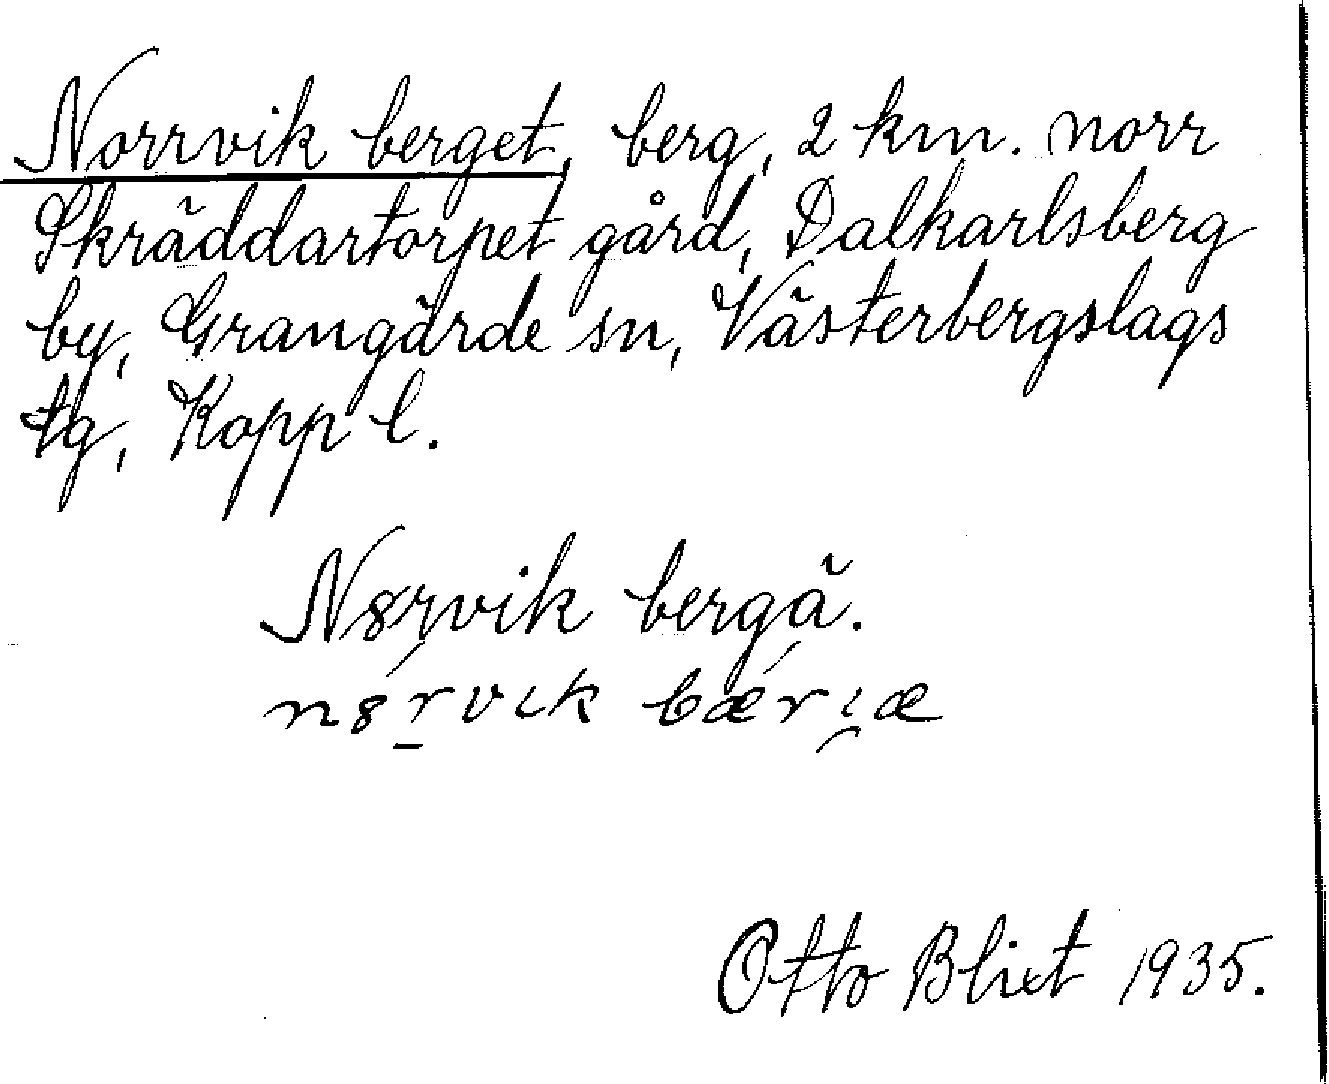 Norrvik berget, berg, 2 km. norr
Skräddartorpet gård, Dalkarlsberg
by, Grangärde sn, Västerbergslags
tg, Kopp l.
N8rvik bergä.
n8rvık bærıæ
Otto Blixt 1935.